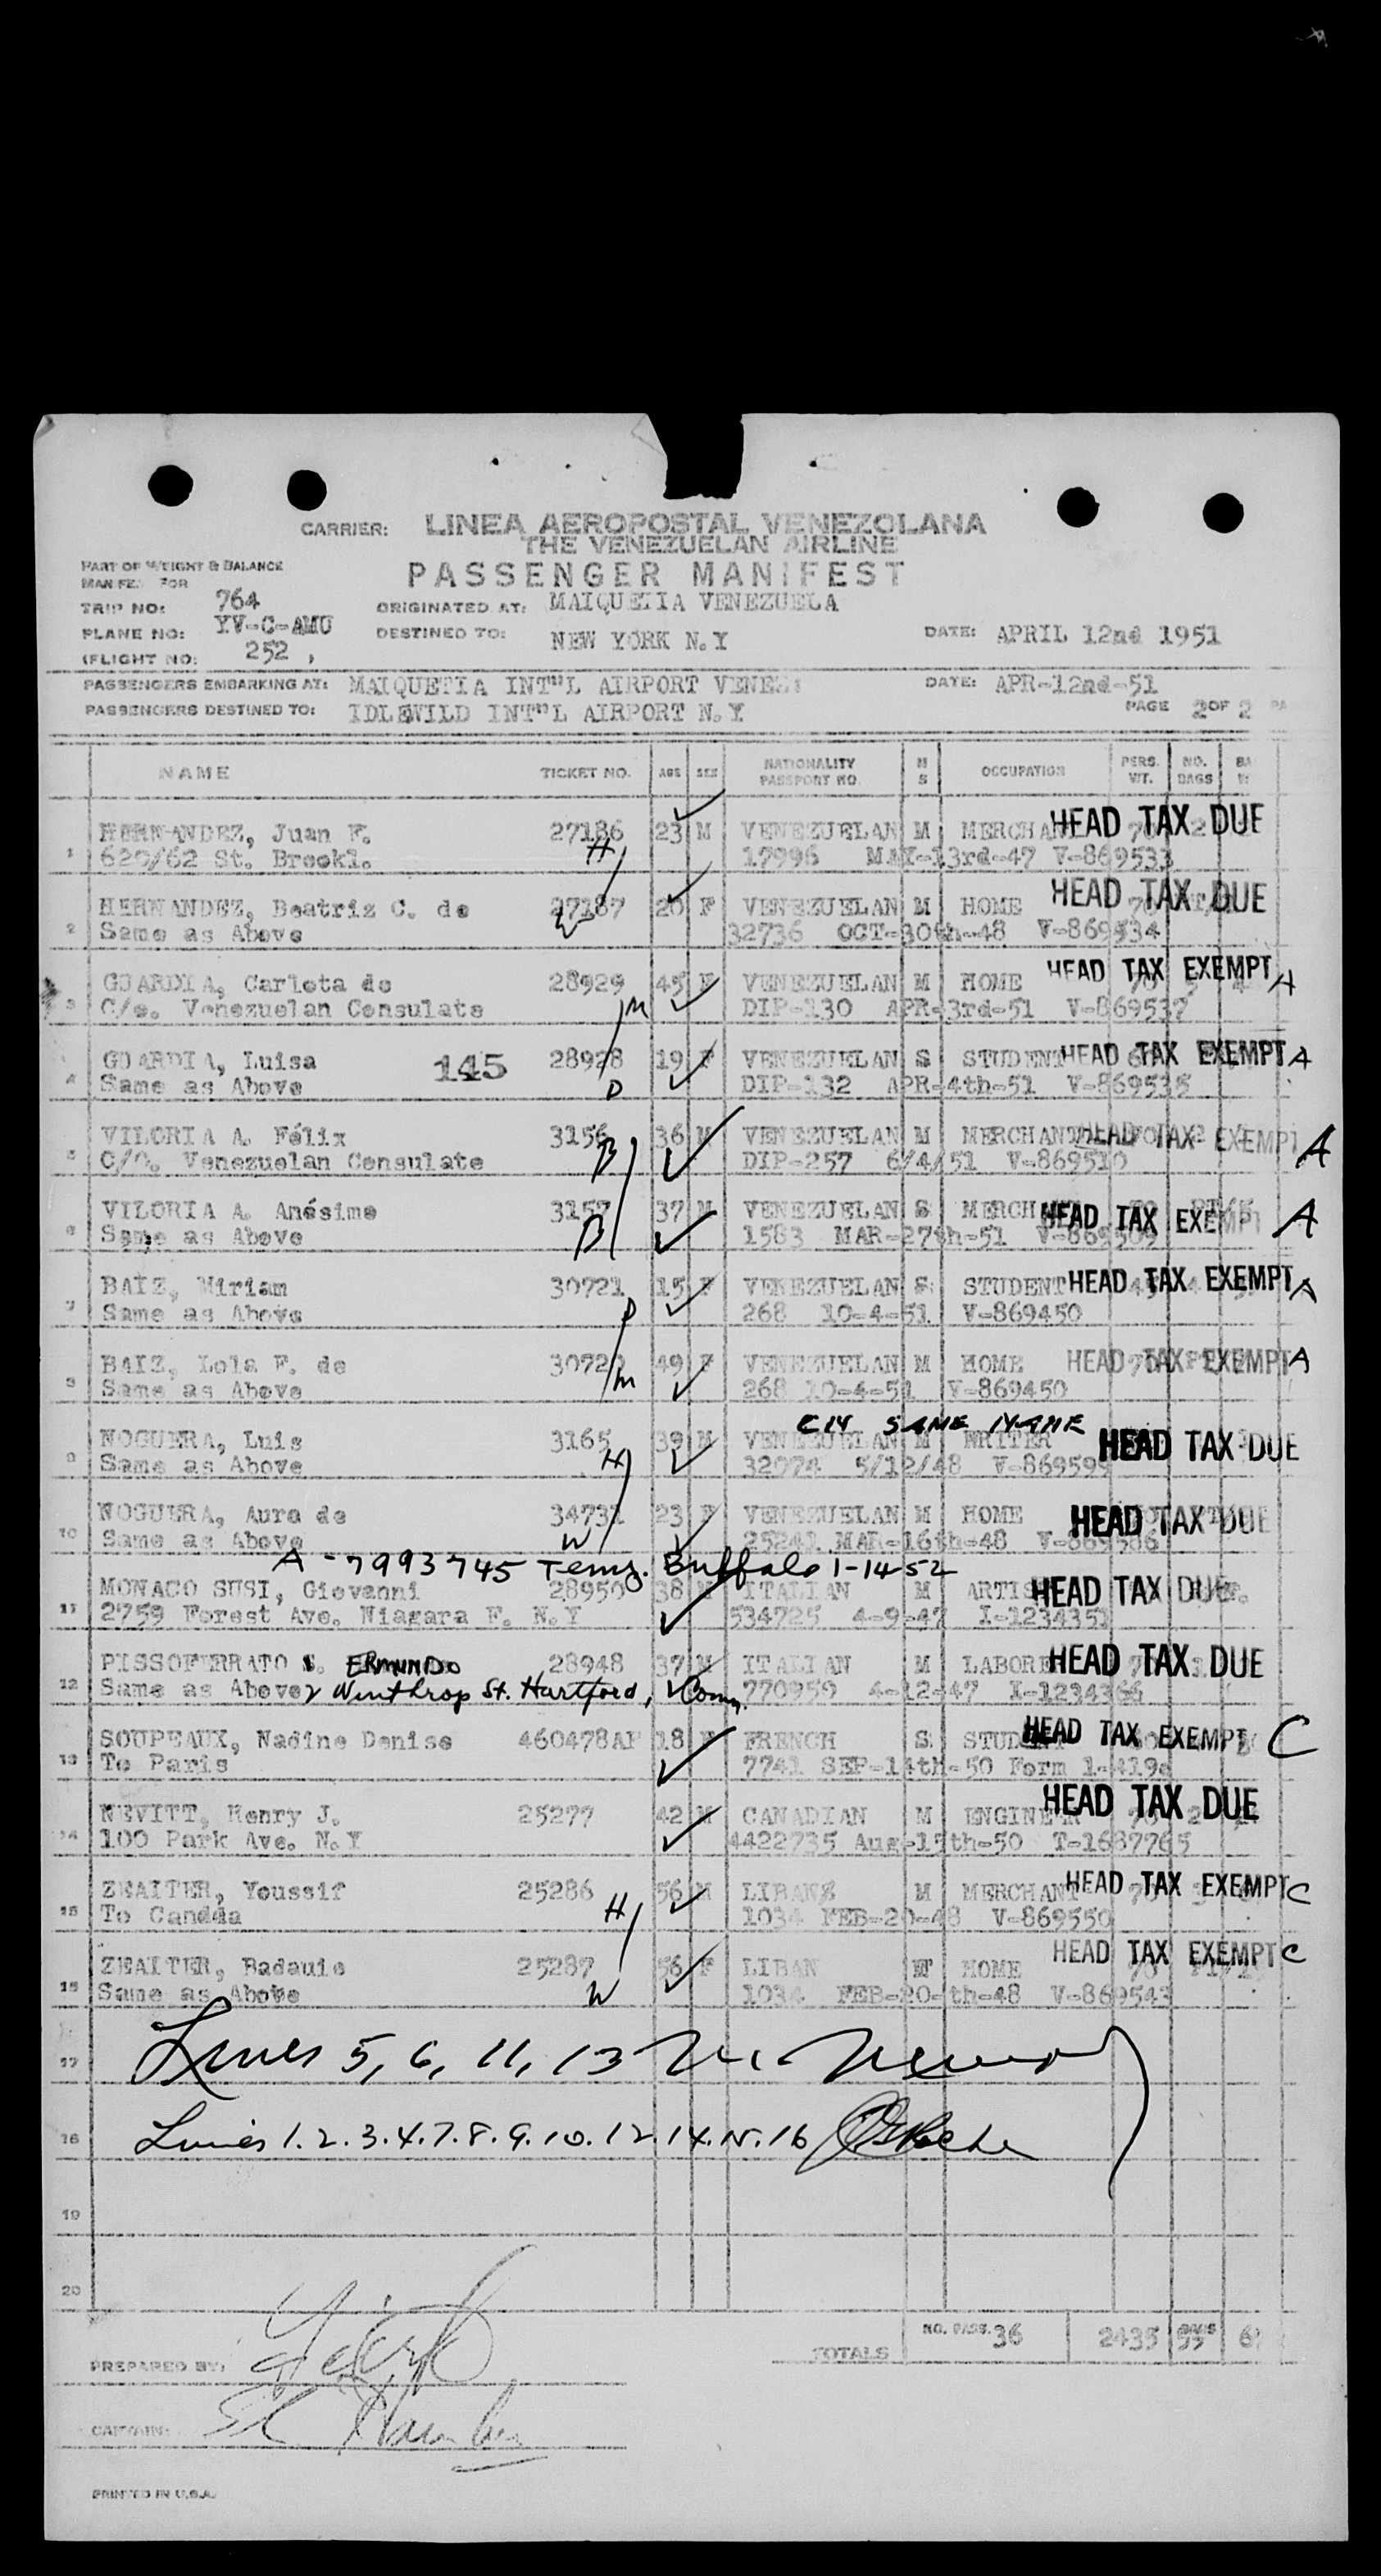 CARRIER: LINEA AEROPOSTAL VENEZOLANA
THE VENEZUELAN AIRLINE
PART OF WEIGHT & BALANCE
PASSENGER MANIFEST
TRIP NO: 764 ORIGINATED AT: MAIQUETIA VENEZUELA
PLANE NO: YV-C-AMU DESTINED TO: NEW YORK N.Y DATE: APRIL 12nd 1951
(FLIGHT NO: 252 ,
PASSENGERS EMBARKING AT: MAIQUETIA INT"L AIRPORT DATE: APR-12nd-51
PASSENGERS DESTINED TO: IDLEWILD INT"L AIRPORT N.Y PAGE 2 OF 2
NAME TICKET NO. AGE SEX NATIONALITY PASSPORT NO. M S OCCUPATION PERS. WT. NO. BAGS
1 HERNANDEZ, Juan F. 27186 23 M VENEZUELAN M HEAD TAX DUE
62 St. Brookl. H 17996 MAY-13rd-47 V-869533
2 HERNANDEZ, Beatriz C. de 27187 20 F VENEZUELAN M HOME HEAD TAX DUE
Same as Above W 32736 OCT-30th-48 V-869534
3 GUARDIA, Carlota de 28929 45 F VENEZUELAN M HOME HEAD TAX EXEMPT A
C/o. Venezuelan Consulate M DIP-130 APR-3rd-51 V-869537
4 GUARDIA, Luisa 145 28928 19 F VENEZUELAN S STUDENT HEAD TAX EXEMPT A
Same as Above D DIP-132 APR-4th-51 V-869535
5 VILORIA A. Félix 3156 36 M VENEZUELAN M MERCHANT HEAD TAX EXEMPT A
C/O. Venezuelan Consulate B DIP-257 6/4/51 V-869510
6 VILORIA A. Anésimo 3157 37 M VENEZUELAN S HEAD TAX EXEMPT A
Same as Above B 1583 MAR-27th-51 V-869509
7 BAIZ, Miriam 30721 15 F VENEZUELAN S STUDENT HEAD TAX EXEMPT A
Same as Above D 268 10-4-51 V-869450
8 BAIZ, Lola F. de 49 F VENEZUELAN M HOME HEAD TAX EXEMPT A
Same as Above M 268 10-4-51 V-869450
SAME NAME
9 NOGUERA, Luis 3165 39 M VENEZUELAN M WRITER HEAD TAX DUE
Same as Above H 32074 5/12/48
10 NOGUERA, Aura de 34731 23 F VENEZUELAN M HOME HEAD TAX DUE
Same as Above W 25241 MAR-16th-48
A-7993745 Temp. Buffalo 1-14-52
11 MONACO SUSI, Giovanni 28950 38 M ITALIAN M HEAD TAX DUE
2759 Forest Ave. Niagara F. N.Y 534725 4-9-47
12 PISSOFERRATO ERMUNDO 28948 37 M ITALIAN M HEAD TAX DUE
Same as Above Winthrop St. Hartford, Conn. 770959 4-12-47 I-1234366
13 SOUPEAUX, Nadine Denise 18 F FRENCH S HEAD TAX EXEMPT C
To Paris 7741 SEP-14th-50 Form
14 NEVITT, Henry J. 25277 42 M CANADIAN M HEAD TAX DUE
100 Park Ave. N.Y 4422735 Aug-15th-50 T-1687765
15 ZEAITER, Youssif 25286 56 M M MERCHANT HEAD TAX EXEMPT C
To Candda H 1034 FEB-20-48 V-869550
16 ZEAITER, Badauie 25287 56 F LIBAN HOME HEAD TAX EXEMPT C
Same as Above W 1034 FEB-20-th-48 V-869543
17 Lines 5, 6, 11, 13
18 Lines 1.2.3.4.7.8.9.10.12.14.15.16
19
20
TOTALS NO. PASS. 36 2435
PREPARED BY:
CAPTAIN:
PRINTED IN U.S.A.